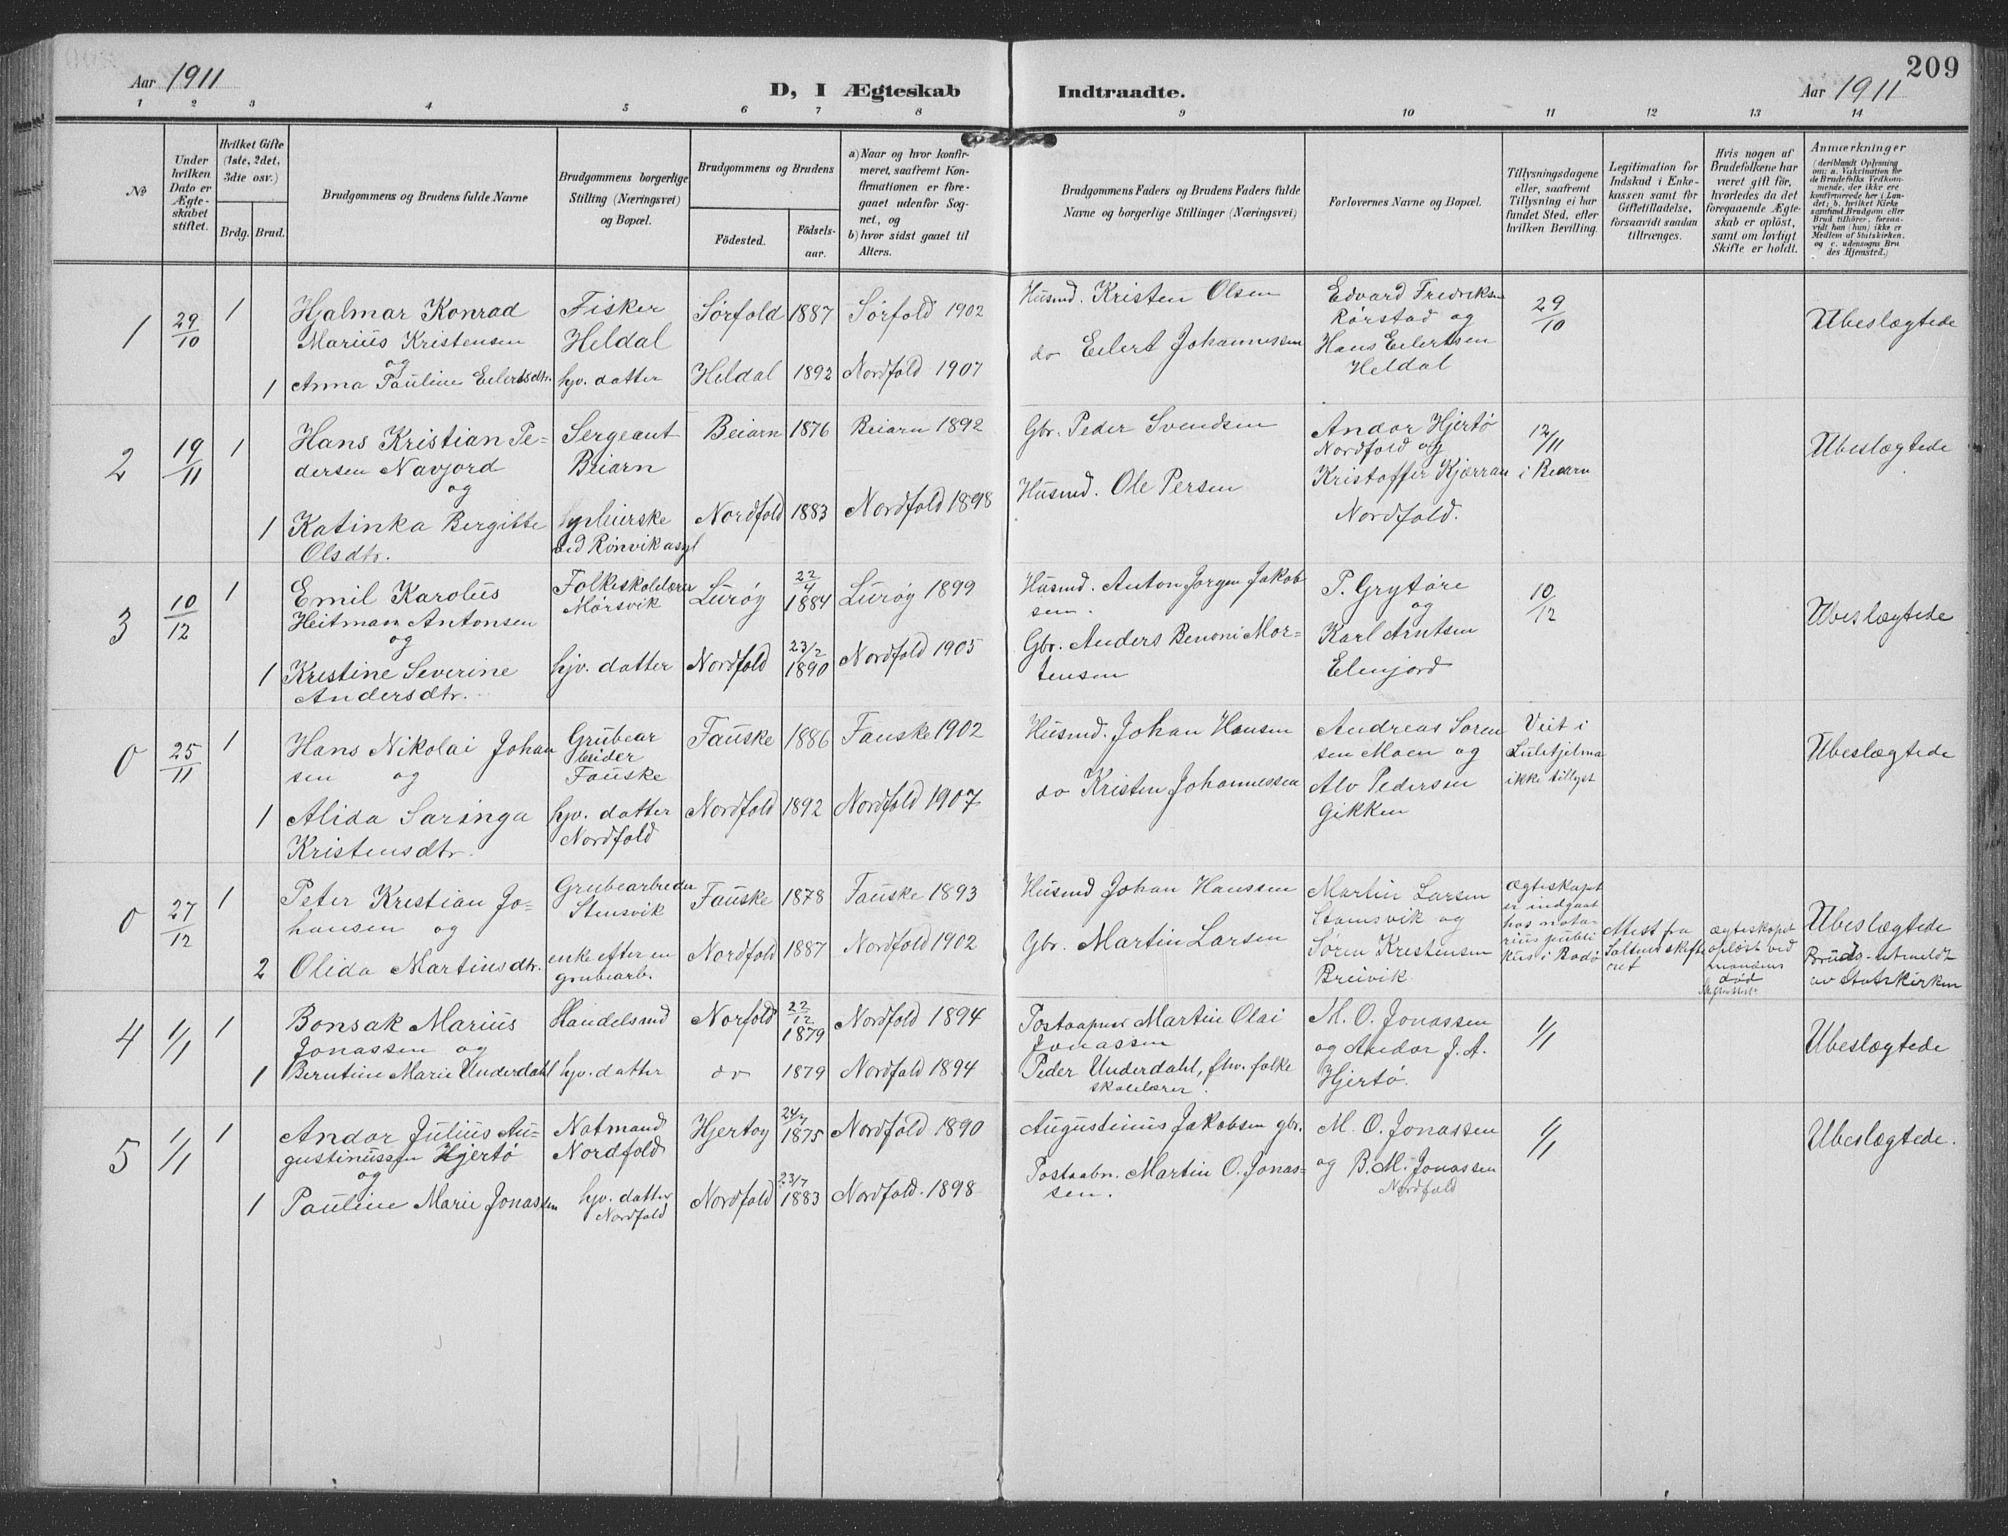 Aar 1911
D, I Ægteskab
Indtraadte.
209
Aar 1911
1 2 3 4 5 6 7 8 9 10 11 12 13 14
No
Under hvilken Dato er Ægteskabet stiftet.
Hvilket Gifte (1ste, 2det, 3die osv.)
Brdg. Brud.
Brudgommens og Brudens fulde Navne
Brudgommens borgerlige Stilling (Næringsvei) og Bopæl.
Brudgommens og Brudens
Födested.
Födsels-aar.
a) Naar og hvor konfirmeret, saafremt Konfirmationen er foregaaet udenfor Sognet, og
b) hvor sidst gaaet til Alters.
Brudgommens Faders og Brudens Faders fulde Navne og borgerlige Stillinger (Næringsvei)
Forlovernes Navne og Bopæl.
Tillysningsdagene eller, saafremt Tillysning ei har fundet Sted, efter hvilken Bevilling.
Legitimation for Indskud i Enkekassen samt for Giftetilladelse, forsaavidt saadan tiltrænges.
Hvis nogen af Brudefolkene har været gift för, hvorledes da det foregaaende Ægteskab er oplöst, samt om lovligt Skifte er holdt.
Anmærkninger
(deriblandt Oplysning om: a. Vakcination for de Brudefolks Vedkommende, der ikke ere konfirmerede her i Landet; b. hvilket Kirkesamfund Brudgom eller Brud tilhörer, forsaavidt han (hun) ikke er Medlem af Statskirken, og c. udensogns Brudes Hjemsted.)
1 29/10 1 Hjalmar Konrad
Marius Kristensen
og
1 Anna Pauline Eilertsdtr.
Fisker
Heldal
hjv. datter
Sørfold 1887 Sørfold 1902
Heldal 1892 Nordfold 1907
Husmd. Kristen Olsen
do Eilert Johannessen
Edvard Fredriksen
Rørstad og
Hans Eilertsen
Heldal
29/10
Ubeslægtede
2 19/11 1 Hans Kristian Pe-
dersen Navjord
og
1 Katinka Bergitte
Olsdtr.
Sergeant
Beiarn
sypleierske
ved Rønvik asyl
Beiarn 1876 Beiarn 1892
Nordfold 1883 Nordfold 1898
Gbr. Peder Svendsen
Husmd. Ole Persen
Andor Hjertø
Nordfold og
Kristoffer Kjærran
Nordfold.
12/11
i Beiarn
Ubeslægtede
3 10/12 1 Emil Karolus
Heitman Antonsen
og
1 Kristine Severine
Andersdtr.
Folkeskolelærer
Mørsvik
hjv. datter
Lurøy 22/4 1884 Lurøy 1899
Nordfold 23/2 1890 Nordfold 1905
Husmd. Anton Jørgen Jakob
sen.
Gbr. Anders Benoni Mor-
tensen
P. Grytøre
og
Karl Arntsen
Elvfjord
10/12
Ubeslægtede
0 25/11 1 Hans Nikolai Johan
sen og
1 Alida Saringa
Kristensdtr.
Grubear
beider
Fauske
hjv. datter
Nordfold
Fauske 1886 Fauske 1902
Nordfold 1892 Nordfold 1907
Husmd. Johan Hansen
do Kristen Johannessen
Andreas Soren
sen Moen og
Alv Pedersen
Gikken
Viet i
ikke tillyst
Ubeslægtede
0 27/12 1 Peter Kristian Jo-
hansen og
2 Olida Martinsdtr.
Grubearbeider
Stensvik
enke efter en
grubearb.
Fauske 1878 Fauske 1893
Nordfold 1887 Nordfold 1902
Husmd Johan Hanssen
Gbr. Martin Larsen
Martin Larsen
Stamsvik og
Søren Kristensen
Breivik
Ægteskapet
er indgaat
hos nota-
rius publi
kus i Bodø
Attest fra
Saltens skifte
ret
ægteskapet
opløst ved
mandens
død
Ubeslægtede
Bruds utmeldt
av Statskirken
4 1/1 1 Bonsak Marius
Jonassen og
1 Berntine Marie Underdahl
Handelsmd
hjv. datter
Norfold 22/12 1879 Nordfold 1894
do 1879 Nordfold 1894
Postaapner Martin Olai
Jonassen
Peder Underdahl, fhv. folke
skolelærer.
M. O. Jonassen
og Andor J. A.
Hjertø.
1/1
Ubeslægtede
5 1/1 1 Andor Julius Au-
gustinussen Hjertø
og
1 Pauline Marie Jonassen
Notmand
Nordfold
hjv. datter
Nordfold
Hjertøy 24/7 1875 Nordfold 1890
Nordfold 23/7 1883 Nordfold. 1898
Augustinus Jakobsen gbr.
Postaabn. Martin O. Jonas-
sen.
M. O. Jonassen
og B. M. Jonassen
Nordfold
1/1
Ubeslægtede.